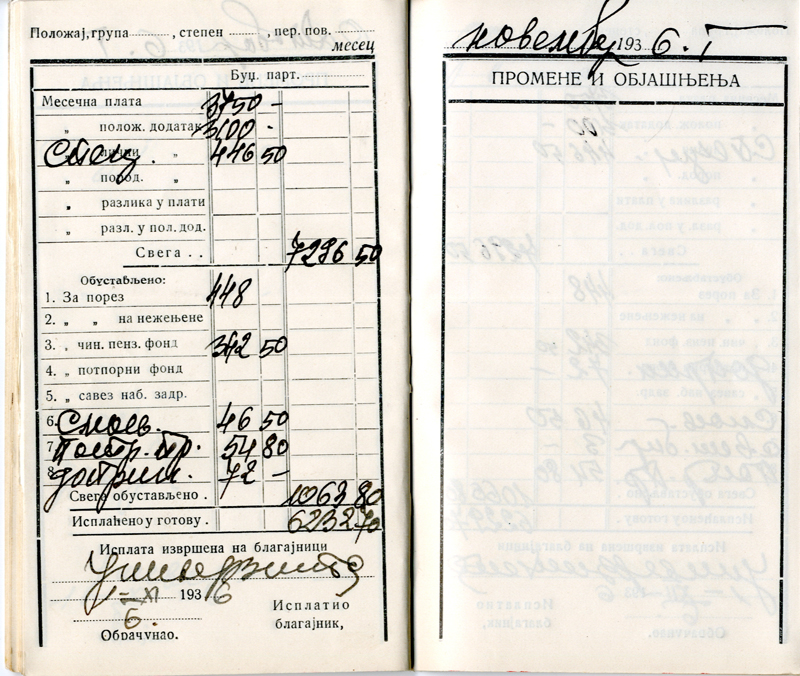 Положај, група , степен , пер. пов.
месец
Буџ. парт.
Месечна плата 3750 -
„ полож. додатак 3100 -
„ лични „ 446 50
„ пород. „
„ разлика у плати
„ разл. у пол. дод.
Свега . . 7296 50
Обустављено:
1. За порез 448
2. „ „ на нежењене
3. „ чин. пенз. фонд 342 50
4. „ потпорни фонд
5. „ савез наб. задр.
6. 46 50
7. 54 80
8. 72 -
Свега обустављено . 1063 80
Исплаћено у готову . 6232 70
Исплата извршена на благајници
Универзитета
1-XI 193 6
6.
Обрачунао.
Исплатио
благајник,
новембар 193 6. I
ПРОМЕНЕ И ОБЈАШЊЕЊА